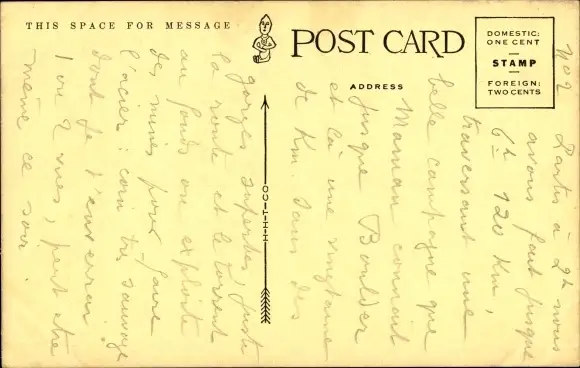 THIS SPACE FOR MESSAGE
POST CARD
ADDRESS
DOMESTIC:
ONE CENT
STAMP
FOREIGN:
TWO CENTS
No 2 Partis à 2h nous
avons fait jusque
6h 120 Km,
traversant une
belle campagne que
Maman connait
jusque Boulder
et là une vingtaine
de Km. dans des
gorges superbes, juste
la route et le torrent
au fonds on exploite
des mines pour faire
l'acier : coin très sauvage
dont je t'enverrai
1 ou 2 vues, peut etre
même ce soir.